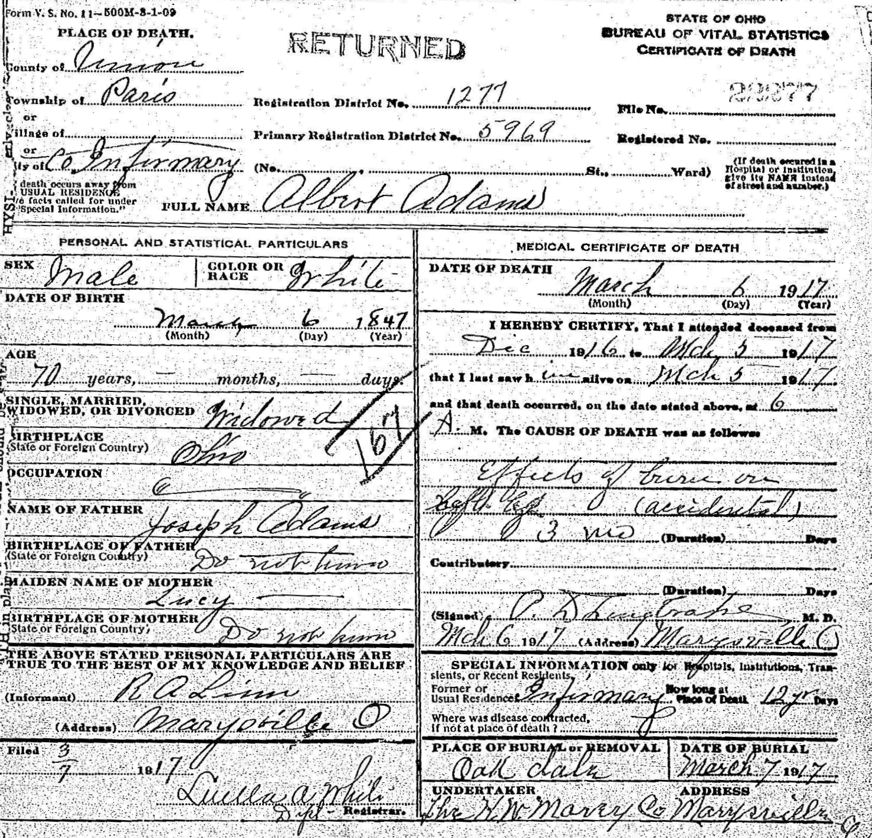 Form V. S. No. 11—500M-8-1-09
PLACE OF DEATH.
RETURNED
STATE OF OHIO
BUREAU OF VITAL STATISTICS
CERTIFICATE OF DEATH
County of Union
Township of Paris
Registration District No. 1277
File No.
or
Village of
Primary Registration District No. 5969
Registered No.
or
City of Co Infirmary
(No. St., Ward)
(If death occured in a
Hospital or Institution,
give its NAME instead
of street and number.)
death occurs away from
USUAL RESIDENCE
facts called for under
"Special Information."
FULL NAME Albert Adams
PERSONAL AND STATISTICAL PARTICULARS
SEX Male
COLOR OR RACE White
DATE OF BIRTH
March 6 1847
(Month) (Day) (Year)
AGE
70 years, — months, — days.
SINGLE, MARRIED,
WIDOWED, OR DIVORCED Widowed
167
BIRTHPLACE
(State or Foreign Country) Ohio
OCCUPATION
NAME OF FATHER Joseph Adams
BIRTHPLACE OF FATHER
(State or Foreign Country) Do not know
MAIDEN NAME OF MOTHER
Lucy —
BIRTHPLACE OF MOTHER
(State or Foreign Country) Do not know
THE ABOVE STATED PERSONAL PARTICULARS ARE
TRUE TO THE BEST OF MY KNOWLEDGE AND BELIEF
(Informant) R A Linn
(Address) Marysville O
Filed 3/7 1917
Luella A White
Registrar.
MEDICAL CERTIFICATE OF DEATH
DATE OF DEATH
March 6 1917
(Month) (Day) (Year)
I HEREBY CERTIFY, That I attended deceased from
Dec 1916 to Mch 5 1917
that I last saw h im alive on Mch 5 1917
and that death occurred, on the date stated above, at 6
A. M. The CAUSE OF DEATH was as follows:
Effects of burn on
Left (accidental)
3 mo (Duration) Days
Contributory
(Duration) Days
(Signed) P. D. M. D.
Mch 6 1917 (Address) Marysville O
SPECIAL INFORMATION only for Hospitals, Institutions, Transients, or Recent Residents,
Former or
Usual Residence Infirmary
How long at
Place of Death 12 yr Days
Where was disease contracted,
If not at place of death?
PLACE OF BURIAL or REMOVAL
Oak dale
DATE OF BURIAL
March 7 1917
UNDERTAKER
The H. W. Morey Co
ADDRESS
Marysville